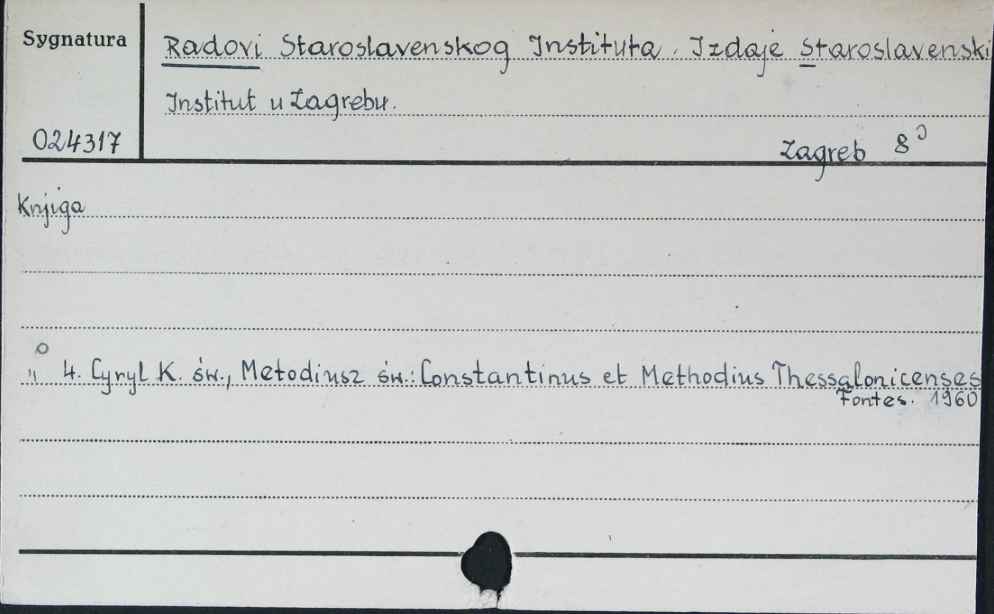 Sygnatura
Radovi Staroslavenskog Instituta. Izdaje Staroslavenski
Institut u Zagrebu.
024317
Zagreb 8°
Knjiga
" 4. Cyryl K. św., Metodiusz św.: Constantinus et Methodius Thessalonicenses
Fontes. 1960